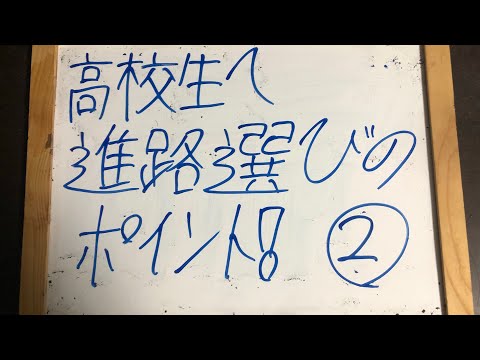 高校生へ
進路選びの
ポイント! ②